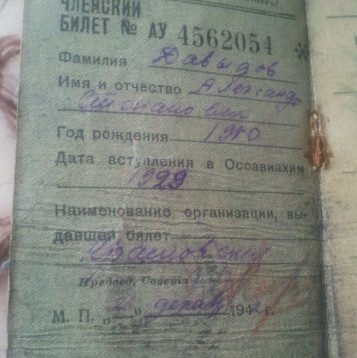 ЧЛЕНСКИЙ
БИЛЕТ № АУ 4562054
Фамилия Давыдов
Имя и отчество Александр
Степанович
Год рождения
Дата вступления в Осоавиахим
1929
Наименование организации, вы-
давшей билет
Председ. Совета
М. П. „ “ декабря 194 г.